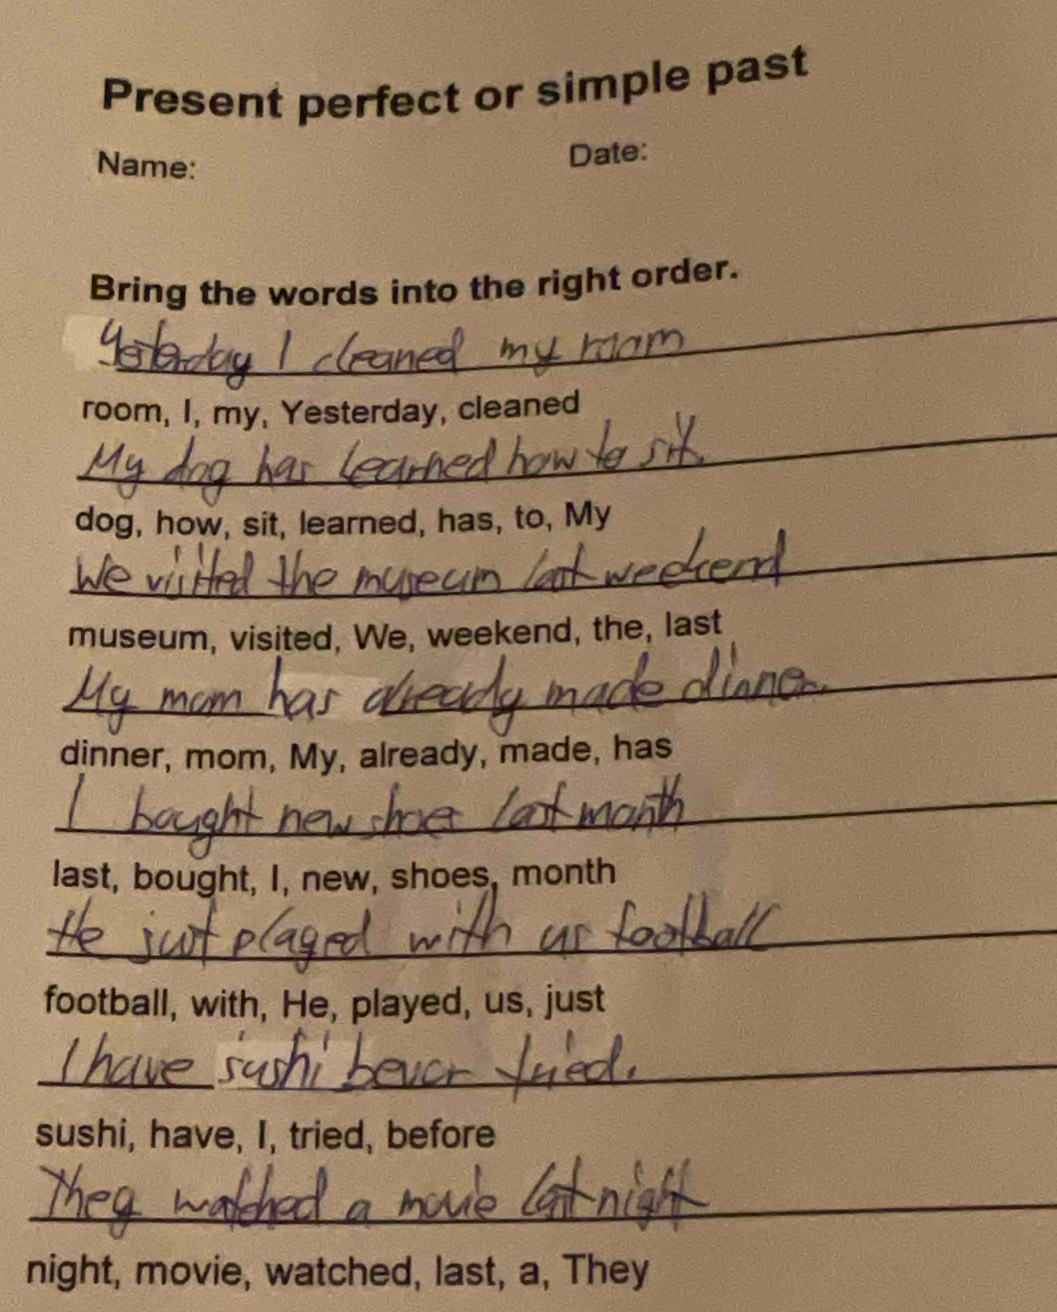 Present perfect or simple past
Name: Date:
Bring the words into the right order.
Yesterday I cleaned my room
room, I, my, Yesterday, cleaned
My dog has learned how to sit.
dog, how, sit, learned, has, to, My
We visited the museum last weekend
museum, visited, We, weekend, the, last
My mom has already made dinner.
dinner, mom, My, already, made, has
I bought new shoes last month
last, bought, I, new, shoes, month
He just played with us football
football, with, He, played, us, just
I have sushi bevor tried.
sushi, have, I, tried, before
They watched a movie last night
night, movie, watched, last, a, They